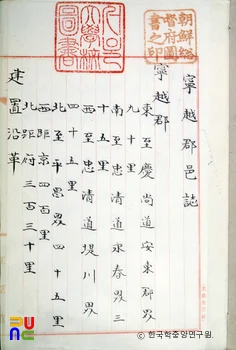 寧越郡邑誌
寧越郡
東至慶尚道安東郡界
九十里
南至忠清道永春界三
十五里
西至忠清道堤川界
四十五里
北至平昌界四十五里
西距京四百里
北距府三百三十里
建置沿革
朝鮮総
督府圖
書之印
ⓒ 한국학중앙연구원